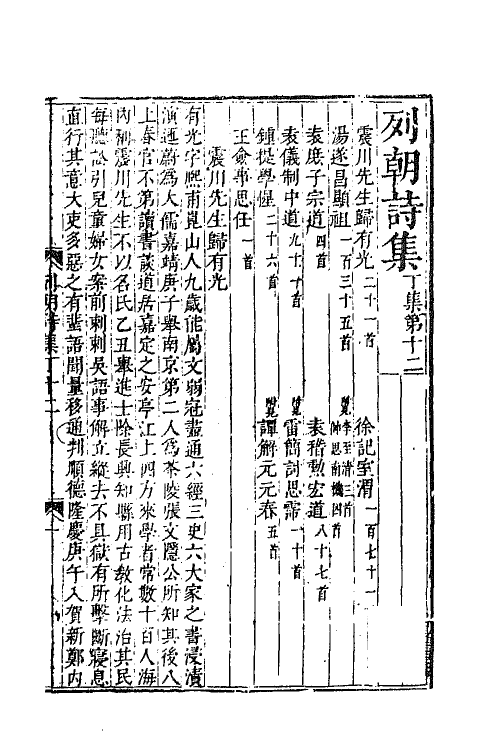 列朝詩集丁集第十二
震川先生歸有光二十一首
徐記室渭一百七十一
湯遂昌顯祖一百三十五首
附見李至清三首
帥思南機四首
袁庶子宗道四首
袁稽勳宏道八十七首
袁儀制中道九十首
附見雷簡討思霈一十首
鍾提學惺二十六首
附見譚解元元春五首
王僉事思任一首
震川先生歸有光
有光字熙甫崑山人九歲能屬文弱冠盡通六經三史六大家之書浸漬
演迤蔚為大儒嘉靖庚子舉南京第二人為茶陵張文隱公所知其後八
上春官不第讀書談道居嘉定之安亭江上四方來學者常數十百人海
內稱震川先生不以名氏乙丑舉進士除長興知縣用古教化法治其民
每聽訟引兒童婦女案前刺刺吳語事解立縱去不具獄有所擊斷寢息
直行其意大吏多惡之有蜚語聞量移通判順德隆慶庚午入賀新鄭內
列朝詩集丁十二
一